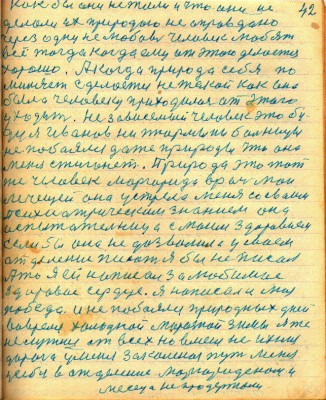 42
как бы они не жили и что они не
делали их природою не оправдано
через одну не любовь человек любят
всё тогда когда ему от этого делается
хорошо. А когда природа себя по
меняет сделается не такой как она
была человеку приходится от этого
уходят. Не зависемый человек это бу-
дуя Иванов ни тюрмы ни больницы
не побоялся даже природы что она
меня стигнет. Природа это тот
же человек Маргарида врач мой
лечущей она устрела меня со своим
психиатрическим знанием она
испытательница с моим здоровием
если бы она не дозволила у своем
отделение писат я бы не писал
А то я ей написал за любимое
здоровое сердце. Я написал и моя
победа. и не побоялся природных дней
вовремя холодной морозной зимы я же
не слушал от всех но влем не ихняя
дорога у меня законная пут меня
у себя в отделение
месеца не продержали